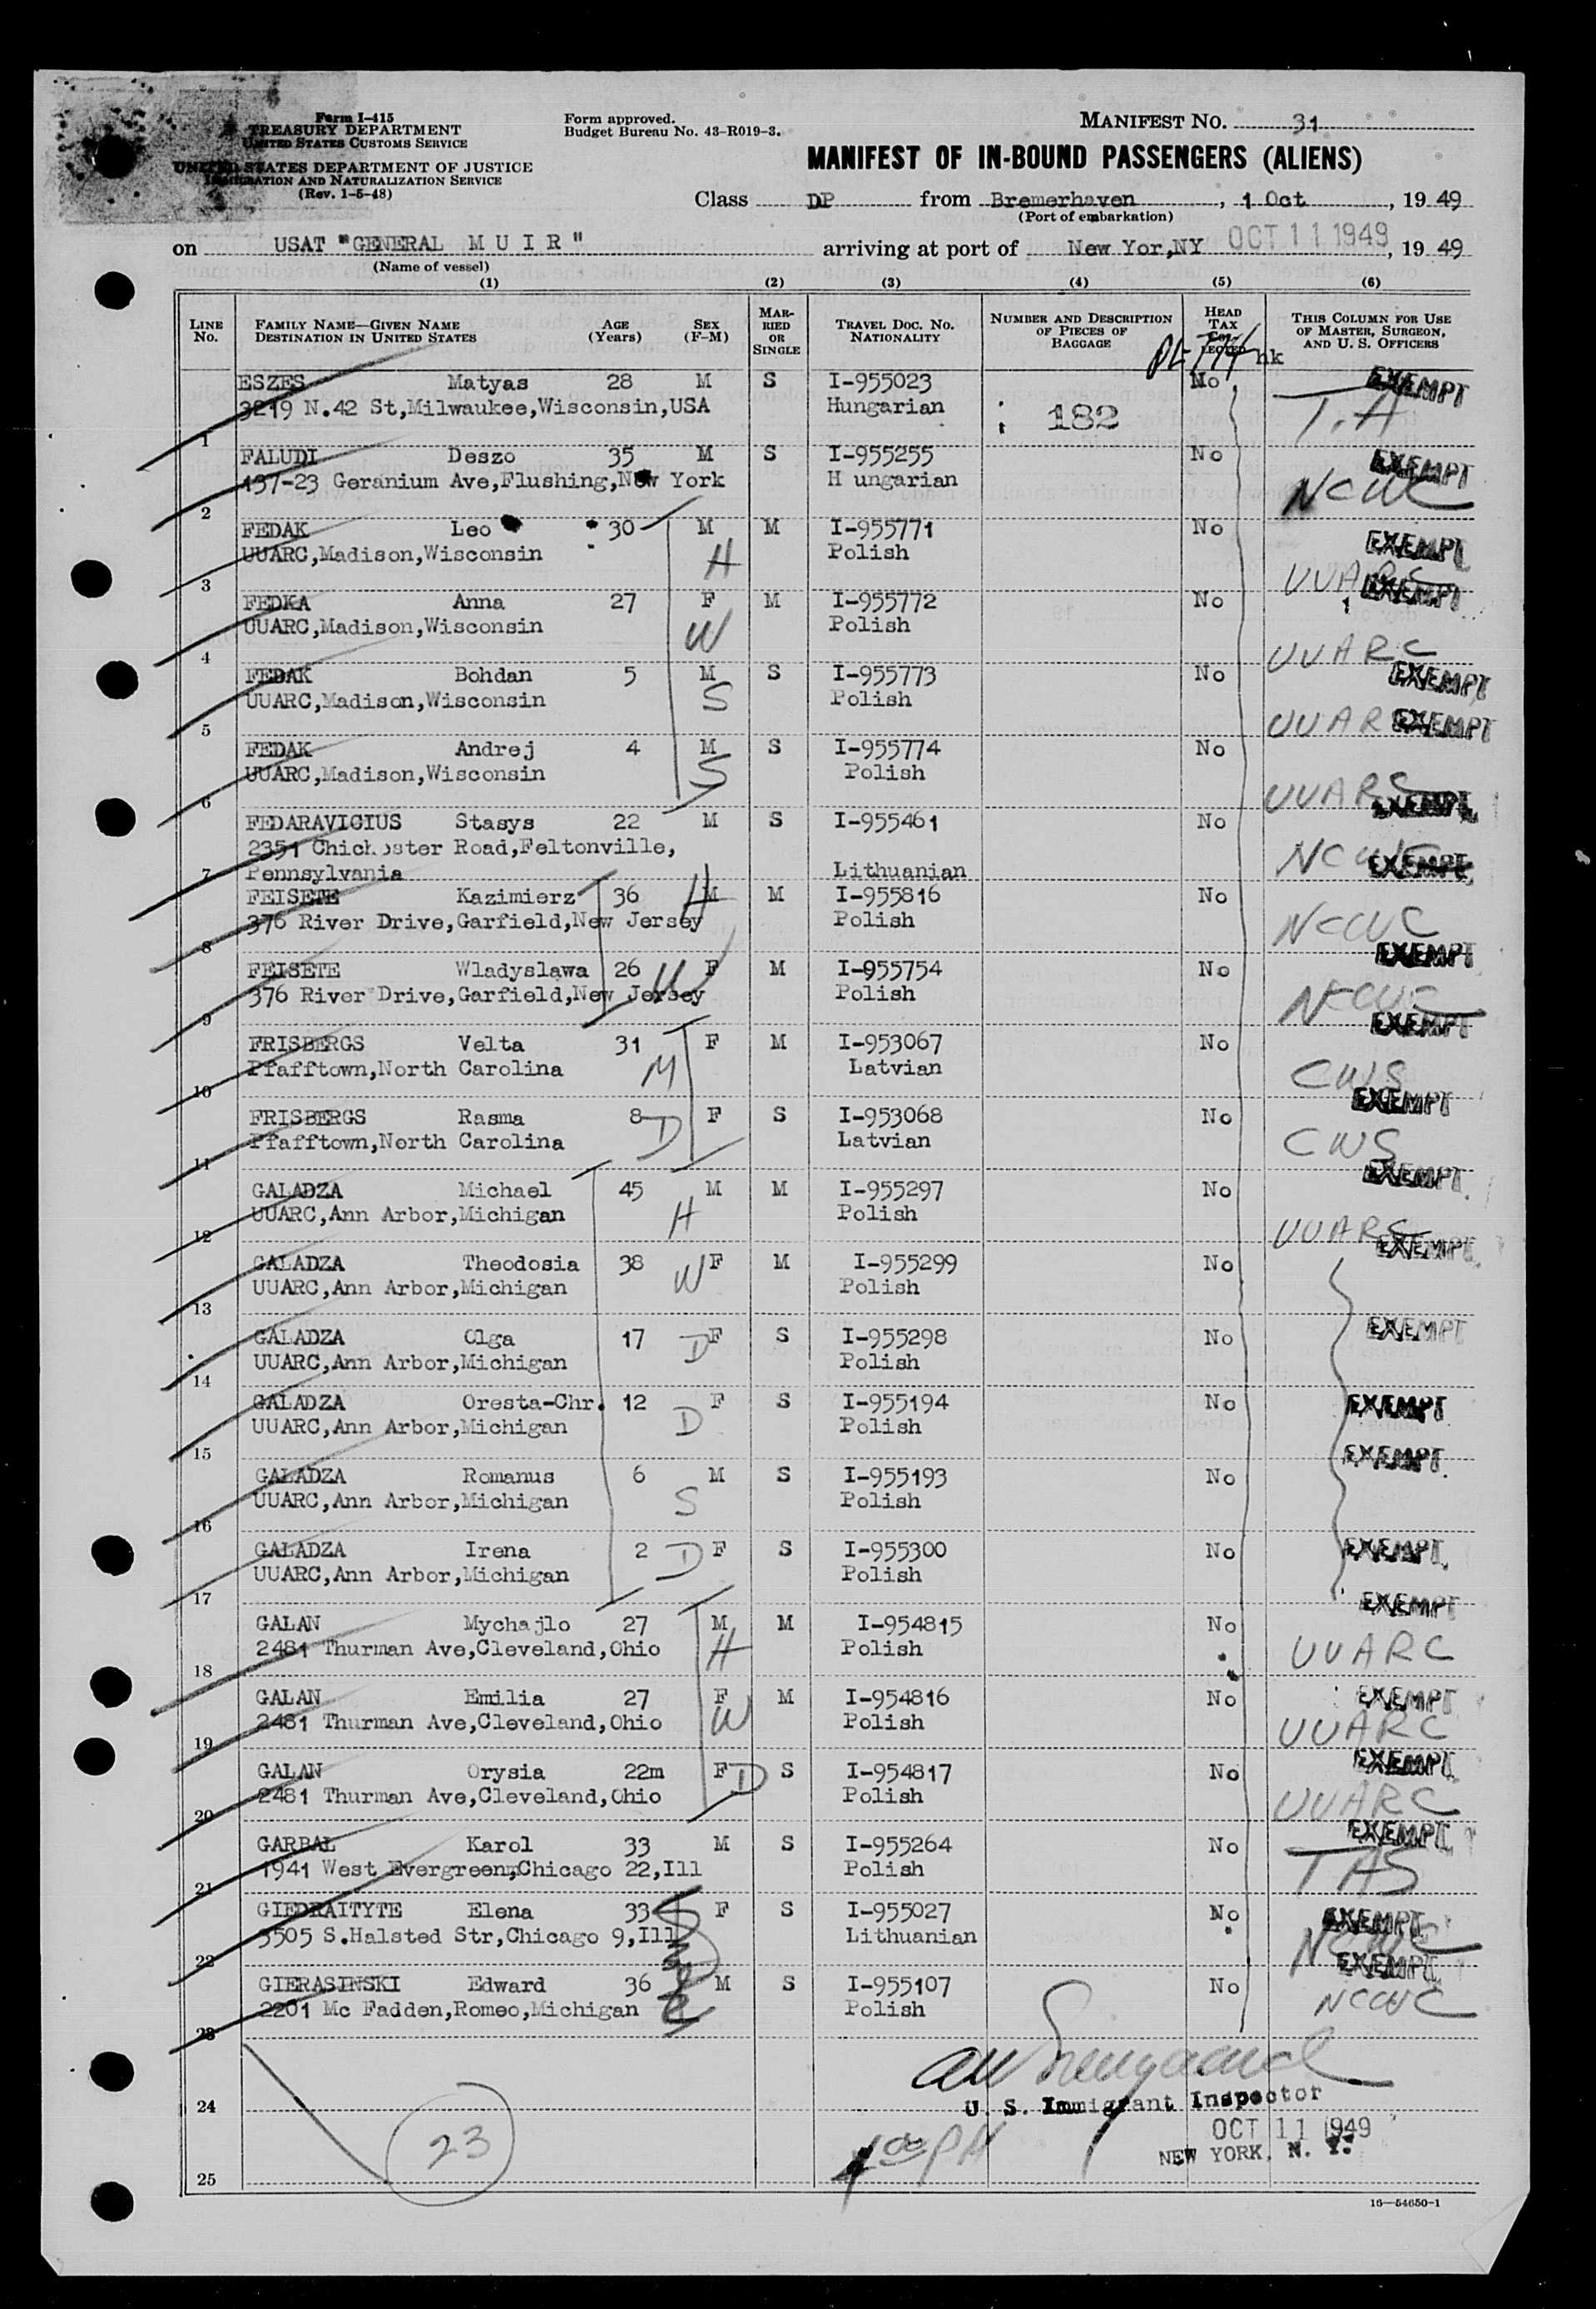 Form I-415
TREASURY DEPARTMENT
UNITED STATES CUSTOMS SERVICE
UNITED STATES DEPARTMENT OF JUSTICE
IMMIGRATION AND NATURALIZATION SERVICE
(Rev. 1-5-48)
Form approved.
Budget Bureau No. 43-R019-3.
MANIFEST NO. 31
MANIFEST OF IN-BOUND PASSENGERS (ALIENS)
Class DP from Bremerhaven, 1 Oct, 19 49
(Port of embarkation)
on USAT "GENERAL M U I R" arriving at port of New Yor,NY OCT 11 1949, 19 49
(Name of vessel)
(1) (2) (3) (4) (5) (6)
LINE No. FAMILY NAME—GIVEN NAME DESTINATION IN UNITED STATES AGE (Years) SEX (F-M) MARRIED OR SINGLE TRAVEL DOC. NO. NATIONALITY NUMBER AND DESCRIPTION OF PIECES OF BAGGAGE HEAD TAX COLLECTED THIS COLUMN FOR USE OF MASTER, SURGEON, AND U. S. OFFICERS
nk
ESZES Matyas 28 M S I-955023 No EXEMPT
3219 N.42 St,Milwaukee,Wisconsin,USA Hungarian 182 T.A
1
FALUDI Deszo 35 M S I-955255 No EXEMPT
137-23 Geranium Ave,Flushing,New York H ungarian NCWC
2
FEDAK Leo 30 M M I-955771 No EXEMPT
UUARC,Madison,Wisconsin H Polish UUARC
3
FEDKA Anna 27 F M I-955772 No EXEMPT
UUARC,Madison,Wisconsin W Polish UUARC
4
FEDAK Bohdan 5 M S I-955773 No EXEMPT
UUARC,Madison,Wisconsin S Polish UUARC EXEMPT
5
FEDAK Andrej 4 M S I-955774 No
UUARC,Madison,Wisconsin S Polish UUARC
6
EXEMPT
FEDARAVICIUS Stasys 22 M S I-955461 No
2351 Chichester Road,Feltonville, NCWC
7 Pennsylvania Lithuanian EXEMPT
FEISETE Kazimierz 36 H M M I-955816 No
376 River Drive,Garfield,New Jersey Polish NCWC
8
EXEMPT
FEISETE Wladyslawa 26 W F M I-955754 No
376 River Drive,Garfield,New Jersey Polish NCWC
9
EXEMPT
FRISBERGS Velta 31 F M I-953067 No
Pfafftown,North Carolina M Latvian CWS
10
EXEMPT
FRISBERGS Rasma 8 F S I-953068 No
Pfafftown,North Carolina D Latvian CWS
11
EXEMPT
GALADZA Michael 45 M M I-955297 No
UUARC,Ann Arbor,Michigan H Polish UUARC
12
EXEMPT
GALADZA Theodosia 38 W F M I-955299 No
UUARC,Ann Arbor,Michigan Polish
13
GALADZA Olga 17 D F S I-955298 No EXEMPT
UUARC,Ann Arbor,Michigan Polish
14
GALADZA Oresta-Chr. 12 F S I-955194 No EXEMPT
UUARC,Ann Arbor,Michigan D Polish
15
EXEMPT
GALADZA Romanus 6 M S I-955193 No
UUARC,Ann Arbor,Michigan S Polish
16
GALADZA Irena 2 D F S I-955300 No EXEMPT
UUARC,Ann Arbor,Michigan Polish
17
EXEMPT
GALAN Mychajlo 27 M M I-954815 No
2481 Thurman Ave,Cleveland,Ohio H Polish UUARC
18
GALAN Emilia 27 F M I-954816 No EXEMPT
2481 Thurman Ave,Cleveland,Ohio W Polish UUARC
19
GALAN Orysia 22m F D S I-954817 No EXEMPT
2481 Thurman Ave,Cleveland,Ohio Polish UUARC
20
GARBAL Karol 33 M S I-955264 No EXEMPT
1941 West Evergreen,Chicago 22,Ill Polish TAS
21
GIEDRAITYTE Elena 33 F S I-955027 No EXEMPT
3505 S.Halsted Str,Chicago 9,Ill Lithuanian NCWC
22
EXEMPT
GIERASINSKI Edward 36 M S I-955107 No
2201 Mc Fadden,Romeo,Michigan Polish NCWC
23
U. S. Immigrant Inspector
24
OCT 11 1949
23
NEW YORK, N. Y.
25
16—54650-1